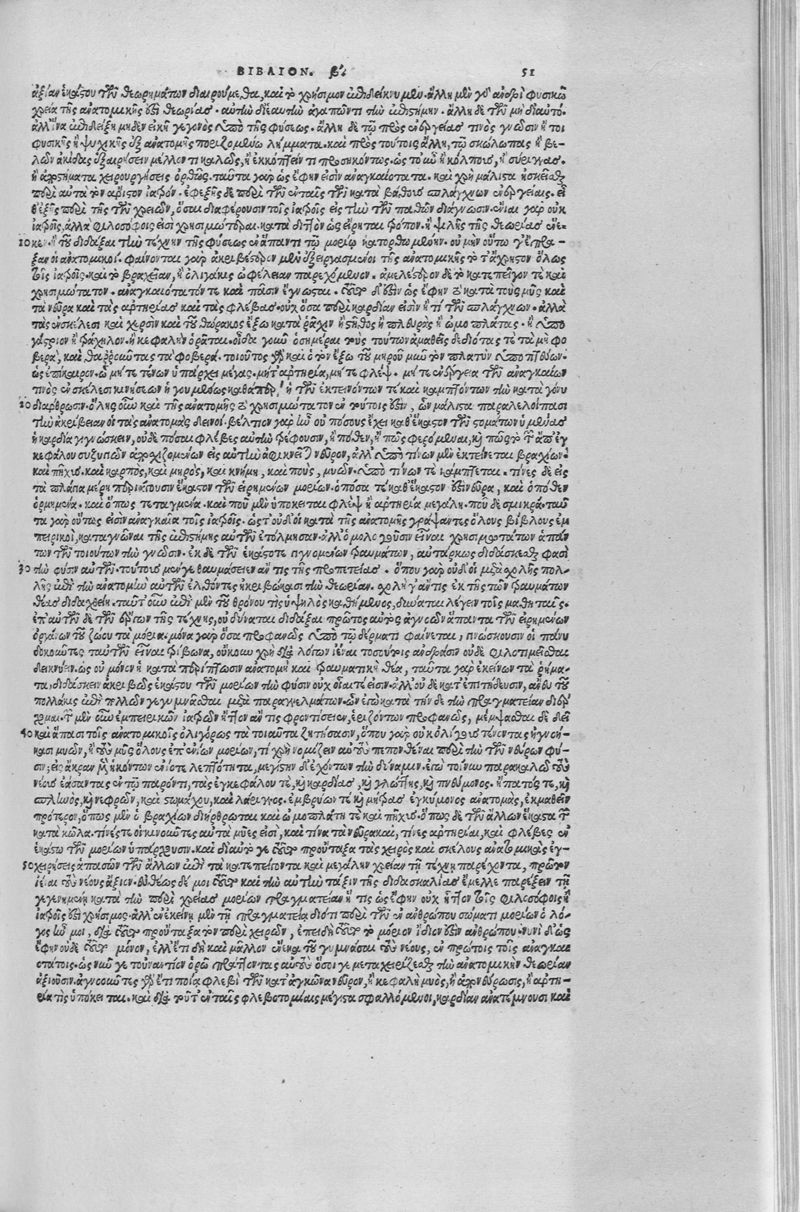 ΒΙΒΛΙΟΝ. β´. 51
ἀξίαν ἑκάστου τῶν θεωρημάτων διαιρούμεθα, καὶ τὸ χρήσιμον ἐπιδείκνυμεν. ἄλλη μὲν γὰρ ἀνδρὶ φυσικῷ
χρεία τῆς ἀνατομικῆς ἐστὶ θεωρίας. αὐτὴν δι᾽ αὐτὴν ἀγαπῶντι τὴν ἐπιστήμην. ἄλλη δὲ τῷ μὴ δι᾽ αὐτό.
ἀλλ᾽ ἵνα ἐπιδείξῃ μηδὲν εἰκῆ γεγονὸς ὑπὸ τῆς φύσεως. ἄλλη δὲ τῷ πρὸς ἐνεργείας τινὸς γνῶσιν ἤτοι
φυσικῆς ἢ ψυχικῆς ἐξ ἀνατομῆς ποριζομένῳ λήμματα. καὶ πρὸς τούτοις ἄλλη, τῷ σκόλωπας ἢ βε-
λῶν ἀκίδας ἐξαιρήσειν μέλλοντι καλῶς, ἢ ἐκκόπτειν τι προσηκόντως. ὡς τοῦν ἢ κόλπους, ἢ σύριγγας.
ἢ ἀποστήματα χειρουργήσεις ὀρθῶς. ταῦτα γὰρ ὡς ἔφην εἰσὶν ἀναγκαιότατα. καὶ χρὴ μάλιστα ἠσκεῖσθαι
περὶ αὐτὰ τὸν ἄριστον ἰατρόν. ἐφεξῆς δὲ περὶ τῶν ἐν ταῖς τῶν κατὰ βάθους σπλάγχνων ἐνεργείαις. εἶ
θ᾽ ἑξῆς περὶ τῶν χρειῶν, ὅσαι διαφέρουσιν τοῖς ἰατροῖς εἰς τὴν τῶν παθῶν διάγνωσιν. ἔνιαι γὰρ οὐκ
ἰατροῖς, ἀλλὰ φιλοσόφοις εἰσὶ χρησιμώτεραι. κατὰ διττὸν ὡς εἴρηται τρόπον. ἢ ψιλῆς τῆς θεωρίας ἕνε-
10 κεν. ἢ τοῦ διδάξαι τὴν τέχνην τῆς φύσεως ἐν ἅπαντι τῷ μορίῳ κατορθωμένην. οὐ μὴν οὕτω γ᾽ ἔπρα-
ξαν οἱ ἀνατομικοί. φαίνονται γὰρ ἀκριβέστερον μὲν ἐξειργασμένοι τῆς ἀνατομικῆς τὸ τ᾽ ἄχρηστον ὅλως
τοῖς ἰατροῖς. καὶ τὸ βραχεῖαν, ἢ ὀλιγάκις ὠφέλειαν παρεχόμενον. ἀμελέστερον δὲ τὸ κατεπεῖγον τε καὶ
χρησιμώτατον. ἀναγκαιότατόν τε καὶ πᾶσιν ἔγνωσται. ἔστι δ᾽ ἐστὶν ὡς ἔφην τὸ κατὰ τοὺς μῦς καὶ
τὰ νεῦρα καὶ τὰς ἀρτηρίας καὶ τὰς φλέβας. οὐχ ὅσα περὶ καρδίαν εἰσὶν ἤ τι τῶν σπλάγχνων. ἀλλὰ
τὰς ἐν σκέλεσι καὶ χερσὶν καὶ τοῦ θώρακος ἔξω κατὰ ῥάχιν ἢ στῆθος ἢ πλευρὰς ἢ ὠμοπλάτας. ἢ ὑπο
γάστριον ἢ τράχηλον. ἢ κεφαλὴν ὁρᾶται. οἶσθα γοῦν ὁσημέραι τοὺς τούτων ἀμαθεῖς δεδιότας τε τὰ μὴ φο
βερά, καὶ θαρροῦντας τὰ φοβερά. τοιοῦτος γοῦν καὶ ὁ τὸν ἔξω τοῦ μηροῦ μῦν τὸν πλατὺν ὑποπτεύων.
ὡς ἐπίκαιρον. ᾧ μήτε τένων ὑπάρχει μέγας. μήτ᾽ ἀρτηρία, μήτε φλέψ. μήτε ἐνέργεια τῶν ἀναγκαίων
τινὸς ἐν σκέλεσι κινήσεων ἡγουμένως καθάπερ, ἡ τῶν ἐκτεινόντων τε καὶ καμπτόντων τὴν κατὰ γόνυ
20 διάρθρωσιν. ὅλης οὖν καὶ τῆς ἀνατομῆς τὸ χρησιμώτατον ἐν τούτοις ἐστίν, ὧν μάλιστα παραλελοίπασι
τὴν ἀκρίβειαν οἱ τὰς ἀνατομὰς δεινοί. βέλτιον γὰρ ἦν οὐ πόσους ἔχει καθ᾽ ἕκαστον τῶν στομάτων ὑμένας
ἡ καρδία γιγνώσκειν, οὐδὲ πόσαι φλέβες αὐτὴν τρέφουσιν, ἢ πόθεν, ἢ πῶς φερόμεναι, καὶ πῶς τὸ τῶν ἀπ᾽ ἐγ
κεφάλου συζυγιῶν ἀφοριζομένων εἰς αὐτὴν ἀφικνεῖται νεῦρον, ἀλλ᾽ ὑπό τίνων μὲν ἐκτείνεται βραχίων.
καὶ πῆχυς. καὶ καρπός, καὶ μηρός, καὶ κνήμη, καὶ πούς, μυῶν. ὑπό τίνων τε κάμπτεται. τίνες δὲ εἰς
τὰ πλάγια μέρη περιάγουσιν ἕκαστον τῶν εἰρημένων μορίων. ὁπόσα τε καθ᾽ ἕκαστόν ἐστι νεῦρα, καὶ ὁπόθεν
ὁρμημένα. καὶ ὅπως τεταγμένα. καὶ ποῦ μὲν ὑπόκειται φλὲψ ἢ ἀρτηρία μεγάλη. ποῦ δὲ σμικρά. ταῦ
τα γὰρ οὕτως εἰσὶν ἀναγκαῖα τοῖς ἰατροῖς. ὥστ᾽ οὐδ᾽ οἱ κατὰ τῆς ἀνατομῆς γράψαντες ὅλους βίβλους ἐμ
πειρικοί, καταγνῶναι τῆς ἐπιστήμης αὐτῶν ἐτόλμησαν. ἀλλ᾽ ὁμολογοῦσιν εἶναι χρησιμωτάτων ἁπάν
των τῶν τοιούτων τὴν γνῶσιν. ἐκ δὲ τῶν ἑκάστοτε γιγνομένων τραυμάτων, αὐτάρκως διδάσκεσθαι φασὶ
30 τὴν φύσιν αὐτῶν. τούτους μέν γε θαυμάσειεν ἄν τις τῆς προπετείας. ὅπου γὰρ οὐδ᾽ οἱ μετὰ σχολῆς πολ-
λῆς ἐπὶ τὴν ἀνατομὴν αὐτῶν ἐλθόντες ἠκριβώκασι τὴν θεωρίαν. σχολῇ γ᾽ ἄν τις ἐκ τῆς τῶν τραυμάτων
θέας διδαχθείη. ταῦτ᾽ οὖν ἐπὶ μὲν τοῦ θρόνου τις ὑψηλὸς καθήμενος, δύναται λέγειν τοῖς μαθηταῖς.
ἐπ᾽ αὐτῶν δὲ τῶν ἔργων τῆς τέχνης, οὐ δύναται διδάξαι πρῶτος αὐτὸς ἀγνοῶν ἅπαντα τῶν εἰρημένων
ὀργάνων τοῦ ζώου τὰ μόρια. μόνα γὰρ ὅσα προφανῶς ὑπὸ τῷ δέρματι φαίνεται, γινώσκουσιν οἱ πάνυ
δοκοῦντες αὐτῶν εἶναι τρίβωνα, οὔκουν χρὴ διὰ λόγων ἰέναι τοσούτοις ἀνδράσιν οὐδὲ φιλοτιμεῖσθαι
δεικνύειν. ὡς οὐ μόνον ἡ κατὰ περίπτωσιν ἀνατομὴ καὶ τραυματικὴ θέα, ταῦτα γὰρ ἐκείνων τὰ ῥήμα-
τα, διδάσκειν ἀκριβῶς ἑκάστου τῶν μορίων τὴν φύσιν οὐχ οἷαί τε εἰσίν. ἀλλ᾽ οὐδὲ κατ᾽ ἐπιτήδευσιν, ἄνευ τοῦ
πολλάκις ἐπὶ πολλῶν γεγυμνάσθαι μετὰ παραγγελμάτων. ὧν ἐπὶ κατὰ τήν δε τὴν πραγματείαν δίει
χομαι. τῶν μὲν οὖν ἐμπειρικῶν ἰατρῶν ἧττον ἄν τις φροντίσειεν, ἐριζόντων προφανῶς, μέμψασθαι δὲ δεῖ
40 καὶ ἅπασι τοῖς ἀνατομικοῖς ὀλιγώρως τὰ τοιαῦτα ζητήσασιν, ὅπου γὰρ οὐκ ὀλίγους τένοντας ἠγνοή-
κασι μυῶν, ἢ τοὺς μῦς ὅλους ἐπ᾽ ἐνίων μορίων, τί χρὴ νομίζειν αὐτοὺς πεπονθέναι περὶ τὴν τῶν νεύρων φύ-
σιν; εἰς ἄκραν μὲν ἡκόντων ἐνίοτε λεπτότητα, μεγίστην δ᾽ ἐχόντων τὴν δύναμιν. ἐγὼ τοίνυν παρακαλῶ τοὺς
νέους ἐάσαντας ἐν τῷ παρόντι, τὰς ἐγκεφάλου τε, καὶ καρδίας, καὶ γλώττης, καὶ πνεύμονος. ἥπατός τε, καὶ
σπληνός, καὶ νεφρῶν, καὶ στομάχου, καὶ λάρυγγος. ἐμβρύων τε καὶ μήτρας ἐγκύμονος ἀνατομάς, ἐκμαθεῖν
πρότερον, ὅπως μὲν ὁ βραχίων διήρθρωται καὶ ὠμοπλάτη τε καὶ πῆχυς. ὅπως δὲ τῶν ἄλλων ἕκαστα τῶν
κατὰ κῶλα. τίνες τε οἱ κινοῦντες αὐτὰ μύες εἰσί, καὶ τίνα τὰ νεῦρα καί, τίνες ἀρτηρίαι, καὶ φλέβες ἐν
ἑκάστῳ τῶν μορίων ὑπάρχουσιν. καὶ διὰ τοῦτό γε προὔταξα τὰς χειρὸς καὶ σκέλους ἀνατομικὰς ἐγ-
χειρήσεις ἁπασῶν τῶν ἄλλων ἐπὶ τὰ κατεπείγοντα καὶ μεγάλην χρείαν τῇ τέχνῃ παρέχοντα, πρῶτον
50 ἰέναι τοὺς νέους ἀξίων. εὐθέως δέ μοι τοῦτο καὶ τὴν αὐτὴν τάξιν τῆς διδασκαλίας ἔμελλε παρέξειν τῇ
γεγενημένῃ κατὰ τὴν περὶ χρείας μορίων πραγματείαν ἥ τις ὡς ἔφην οὐχ ἧττον τοῖς φιλοσόφοις ἢ
ἰατροῖς ἐστὶ χρήσιμος. ἀλλ᾽ ἐν ἐκείνῃ μὲν τῇ πραγματείᾳ διότι περὶ τῶν ἐν ἀνθρώπου σώματι μορίων ὁ λό-
γος ἦν μοι, διὰ τοῦτο προὔταξα τὸν περὶ χειρῶν, ἐπειδὴ τοῦτο τὸ μόριον ἴδιόν ἐστιν ἀνθρώπου. νυνὶ δ᾽ ὡς
ἔφην οὐ διὰ τοῦτο μόνον, ἀλλ᾽ ἔτι δὴ καὶ μᾶλλον ἕνεκα τοῦ γυμνᾶσαι τοὺς νέους, ἐν πρώτοις τοῖς ἀναγκαιο
τάτοις. ὡς νῦν γε τοὐναντίον ὁρῶ πράττοντας αὐτοὺς ὅσοι γε μεταχειρίζεσθαι τὴν ἀνατομικὴν θεωρίαν
ἀξιοῦσιν. ἀγνοοῦντες γὰρ ἔτι ποίᾳ φλεβὶ τῶν κατ᾽ ἀγκῶνα νεῦρον, ἢ κεφαλὴ μυός, ἢ ἀπονεύρωσις, ἢ ἀρτη-
ρία τις ὑπόκειται. καὶ διὰ τοῦτ᾽ ἐν ταῖς φλεβοτομίαις μέγιστα σφαλλόμενοι, καρδίαν ἀνατέμνουσι καὶ